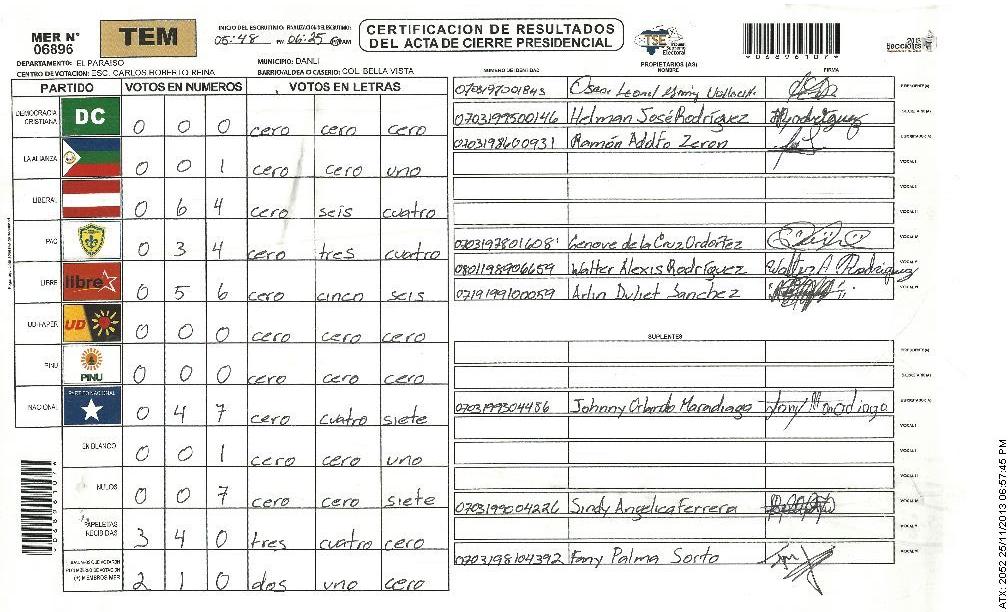 MER N° 06896
TEM
INICIO DEL ESCRUTINIO: FINALIZACIÓN DEL ESCRUTINIO:
05:48 PM 06:25 AM
CERTIFICACION DE RESULTADOS
DEL ACTA DE CIERRE PRESIDENCIAL
TSE Tribunal Supremo Electoral
*06896107*
2013
DEPARTAMENTO: EL PARAISO
MUNICIPIO: DANLI
CENTRO DE VOTACION: ESC. CARLOS ROBERTO REINA
BARRIO/ALDEA O CASERIO: COL. BELLA VISTA
PARTIDO VOTOS EN NUMEROS VOTOS EN LETRAS
DEMOCRACIA CRISTIANA DC 0 0 0 cero cero cero
LA ALIANZA 0 0 1 cero cero uno
LIBERAL 0 6 4 cero seis cuatro
PAC 0 3 4 cero tres cuatro
LIBRE libre 0 5 6 cero cinco seis
UD-FAPER UD 0 0 0 cero cero cero
PINU PINU 0 0 0 cero cero cero
NACIONAL PARTIDO NACIONAL 0 4 7 cero cuatro siete
EN BLANCO 0 0 1 cero cero uno
NULOS 0 0 7 cero cero siete
PAPELETAS RECIBIDAS 3 4 0 tres cuatro cero
(+) MIEMBROS MER 2 1 0 dos uno cero
*06896107*
NUMERO DE IDENTIDAD PROPIETARIOS (AS) NOMBRE FIRMA
0703197001843 Leonel PRESIDENTE (A)
0703199500146 Helman José Rodríguez HJRodríguez SECRETARIO (A)
0703198600931 Ramón Adolfo Zeron ESCRUTADOR (A)
VOCAL I
VOCAL II
VOCAL III
0703197801608 Genove de la Cruz Ordoñez VOCAL IV
0801198906659 Walter Alexis Rodríguez Walter A Rodriguez VOCAL V
0719199100059 Arlin Duliet Sanchez VOCAL VI
SUPLENTES
PRESIDENTE (A)
SECRETARIO (A)
0703199304486 Johnny Orlando Maradiaga Jony Maradiaga ESCRUTADOR (A)
VOCAL I
VOCAL II
VOCAL III
0703199004226 Sindy Angelica Ferrera VOCAL IV
VOCAL V
0703198104392 Fany Palma Sorto VOCAL VI
ATX: 2052 25/11/2013 06:57:45 PM